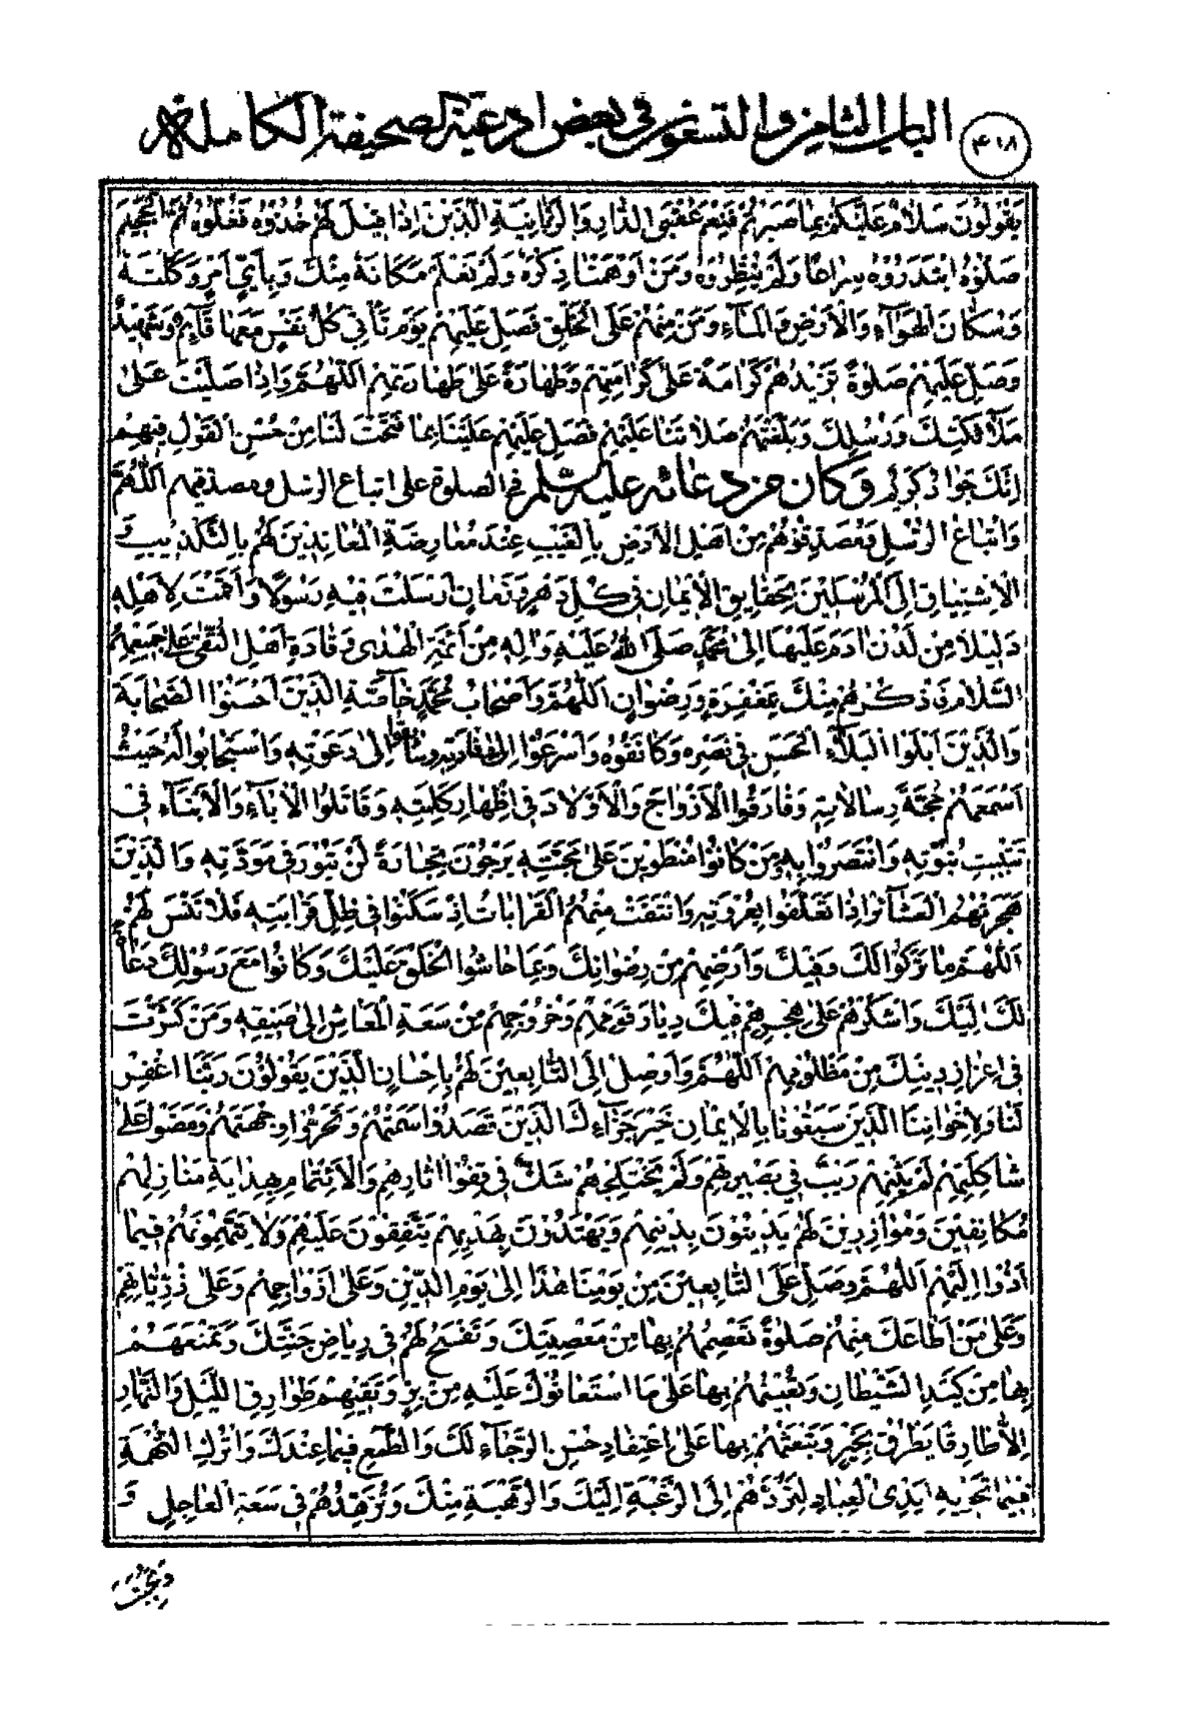 ٤١٨ الباب الثامن والتسعون في بعض ادعية الصحيفة الكاملة
يَقُولُونَ سَلَامٌ عَلَيْكُمْ بِمَا صَبَرْتُمْ فَنِعْمَ عُقْبَى الدَّارِ وَالزَّبَانِيَةِ الَّذِينَ اِذَا قِيلَ لَهُمْ خُذُوهُ فَغُلُّوهُ ثُمَّ الْجَحِيمَ
صَلُّوهُ ابْتَدَرُوهُ سِرَاعًا وَلَمْ يُنْظِرُوهُ وَمَنْ اَوْهَمْنَا ذِكْرَهُ وَلَمْ نَعْلَمْ مَكَانَهُ مِنْكَ وَبِاَيِّ اَمْرٍ وَكَّلْتَهُ
وَسُكَّانِ الْهَوَآءِ وَالْاَرْضِ وَالْمَآءِ وَمَنْ مِنْهُمْ عَلَى الْخَلْقِ فَصَلِّ عَلَيْهِمْ يَوْمَ تَأْتِي كُلُّ نَفْسٍ مَعَهَا قَآئِمٌ وَشَهِيدٌ
وَصَلِّ عَلَيْهِمْ صَلٰوةً تَزِيدُهُمْ كَرَامَةً عَلٰى كَرَامَتِهِمْ وَطَهَارَةً عَلٰى طَهَارَتِهِمْ اَللّٰهُمَّ وَاِذَا صَلَّيْتَ عَلٰى
مَلَآئِكَتِكَ وَرُسُلِكَ وَبَلَّغْتَهُمْ صَلَاتَنَا عَلَيْهِمْ فَصَلِّ عَلَيْهِمْ عَلَيْنَا بِمَا فَتَحْتَ لَنَا مِنْ حُسْنِ الْقَوْلِ فِيهِمْ
اِنَّكَ جَوَادٌ كَرِيمٌ وكان من دعائه عليه السلام في الصلوة على اتباع الرسل ومصدقيهم اَللّٰهُمَّ
وَاَتْبَاعُ الرُّسُلِ وَمُصَدِّقُوهُمْ مِنْ اَهْلِ الْاَرْضِ بِالْغَيْبِ عِنْدَ مُعَارَضَةِ الْمُعَانِدِينَ لَهُمْ بِالتَّكْذِيبِ وَ
الْاِشْتِيَاقِ اِلَى الْمُرْسَلِينَ بِحَقَايِقِ الْاِيمَانِ فِي كُلِّ دَهْرٍ وَزَمَانٍ اَرْسَلْتَ فِيهِ رَسُولًا وَاَقَمْتَ لِاَهْلِهِ
دَلِيلًا مِنْ لَدُنْ اٰدَمَ عَلَيْهَا اِلٰى مُحَمَّدٍ صَلَّى اللّٰهُ عَلَيْهِ وَاٰلِهِ مِنْ اَئِمَّةِ الْهُدٰى وَقَادَةِ اَهْلِ التُّقٰى عَلٰى جَمِيعِهِمُ
السَّلَامُ فَاذْكُرْهُمْ مِنْكَ بِمَغْفِرَةٍ وَرِضْوَانٍ اَللّٰهُمَّ وَاَصْحَابُ مُحَمَّدٍ خَآصَّةً الَّذِينَ اَحْسَنُوا الصَّحَابَةَ
وَالَّذِينَ اَبْلَوُا الْبَلَآءَ الْحَسَنَ فِي نَصْرِهِ وَكَانَفُوهُ وَاَسْرَعُوا اِلٰى وِفَادَتِهِ وَسَابَقُوا اِلٰى دَعْوَتِهِ وَاسْتَجَابُوا لَهُ حَيْثُ
اَسْمَعَهُمْ حُجَّةَ رِسَالَاتِهِ وَفَارَقُوا الْاَزْوَاجَ وَالْاَوْلَادَ فِي اِظْهَارِ كَلِمَتِهِ وَقَاتَلُوا الْاٰبَآءَ وَالْاَبْنَآءَ فِي
تَثْبِيتِ نُبُوَّتِهِ وَانْتَصَرُوا بِهِ وَمَنْ كَانُوا مُنْطَوِينَ عَلٰى مَحَبَّتِهِ يَرْجُونَ تِجَارَةً لَنْ تَبُورَ فِي مَوَدَّتِهِ وَالَّذِينَ
هَجَرَتْهُمُ الْعَشَآئِرُ اِذَا تَعَلَّقُوا بِعُرْوَتِهِ وَانْتَفَتْ مِنْهُمُ الْقَرَابَاتُ اِذْ سَكَنُوا فِي ظِلِّ قَرَابَتِهِ فَلَا تَنْسَ لَهُمُ
اَللّٰهُمَّ مَا تَرَكُوا لَكَ وَفِيكَ وَاَرْضِهِمْ مِنْ رِضْوَانِكَ وَبِمَا حَاشُوا الْخَلْقَ عَلَيْكَ وَكَانُوا مَعَ رَسُولِكَ دُعَاةً
لَكَ اِلَيْكَ وَاشْكُرْهُمْ عَلٰى هَجْرِهِمْ فِيكَ دِيَارَ قَوْمِهِمْ وَخُرُوجِهِمْ مِنْ سَعَةِ الْمَعَاشِ اِلٰى ضِيقِهِ وَمَنْ كَثَّرْتَ
فِي اِعْزَازِ دِينِكَ مِنْ مَظْلُومِهِمْ اَللّٰهُمَّ وَاَوْصِلْ اِلَى التَّابِعِينَ لَهُمْ بِاِحْسَانٍ الَّذِينَ يَقُولُونَ رَبَّنَا اغْفِرْ
لَنَا وَلِاِخْوَانِنَا الَّذِينَ سَبَقُونَا بِالْاِيمَانِ خَيْرَ جَزَآئِكَ الَّذِينَ قَصَدُوا سَمْتَهُمْ وَتَحَرَّوْا وِجْهَتَهُمْ وَمَضَوْا عَلٰى
شَاكِلَتِهِمْ لَمْ يَثْنِهِمْ رَيْبٌ فِي بَصِيرَتِهِمْ وَلَمْ يَخْتَلِجْهُمْ شَكٌّ فِي قَفْوِ اٰثَارِهِمْ وَالْاِئْتِمَامِ بِهِدَايَةِ مَنَارِهِمْ
مُكَانِفِينَ وَمُوَازِرِينَ لَهُمْ يَدِينُونَ بِدِينِهِمْ وَيَهْتَدُونَ بِهَدْيِهِمْ يَتَّفِقُونَ عَلَيْهِمْ وَلَا يَتَّهِمُونَهُمْ فِيمَا
اَدَّوْا اِلَيْهِمْ اَللّٰهُمَّ وَصَلِّ عَلَى التَّابِعِينَ مِنْ يَوْمِنَا هٰذَا اِلٰى يَوْمِ الدِّينِ وَعَلٰى اَزْوَاجِهِمْ وَعَلٰى ذُرِّيَّاتِهِمْ
وَعَلٰى مَنْ اَطَاعَكَ مِنْهُمْ صَلٰوةً تَعْصِمُهُمْ بِهَا مِنْ مَعْصِيَتِكَ وَتَفْسَحُ لَهُمْ فِي رِيَاضِ جَنَّتِكَ وَتَمْنَعُهُمْ
بِهَا مِنْ كَيْدِ الشَّيْطَانِ وَتُعِينُهُمْ بِهَا عَلٰى مَا اسْتَعَانُوكَ عَلَيْهِ مِنْ بِرٍّ وَتَقِيهِمْ طَوَارِقَ اللَّيْلِ وَالنَّهَارِ
اِلَّا طَارِقًا يَطْرُقُ بِخَيْرٍ وَتَبْعَثُهُمْ بِهَا عَلٰى اِعْتِقَادِ حُسْنِ الرَّجَآءِ لَكَ وَالطَّمَعِ فِيمَا عِنْدَكَ وَتَرْكِ التُّهَمَةِ
فِيمَا تَحْوِيهِ اَيْدِى الْعِبَادِ لِتَرُدَّهُمْ اِلَى الرَّغْبَةِ اِلَيْكَ وَالرَّهْبَةِ مِنْكَ وَتُزَهِّدَهُمْ فِي سَعَةِ الْعَاجِلِ وَ